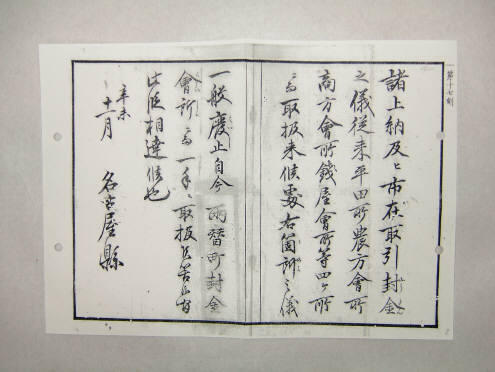 第十七刷
諸上納及ヒ市在取引封金
之儀従来平田所農方會所
商方會所銭屋會所等四ヶ所
ニ而取扱来候處右箇所之儀
一般廢止自今両替町封金
會所ニ而一手ニ取扱
此段相達候也
辛未
十一月
名古屋縣